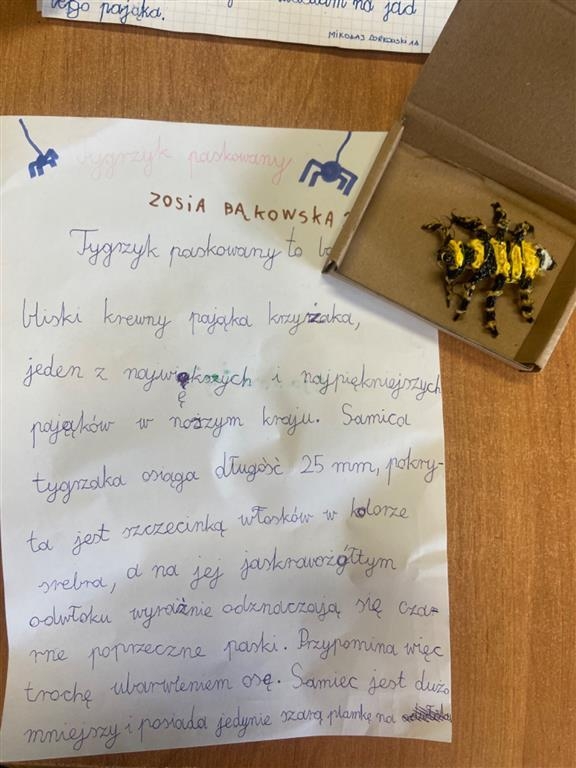 jego pająka.
na jad
MIKOŁAJ
Tygrzyk paskowany
ZOSIA BĄKOWSKA
Tygrzyk paskowany to
bliski krewny pająka krzyżaka,
jeden z największych i najpiękniejszych
ę
pająków w naszym kraju. Samica
tygrzaka osiąga długość 25 mm, pokry-
ta jest szczecinką włosków w kolorze
srebra, a na jej jaskrawożółtym
odwłoku wyraźnie odznaczają się cza-
rne poprzeczne paski. Przypomina więc
trochę ubarwieniem osę. Samiec jest dużo
mniejszy i posiada jedynie szarą plamkę na